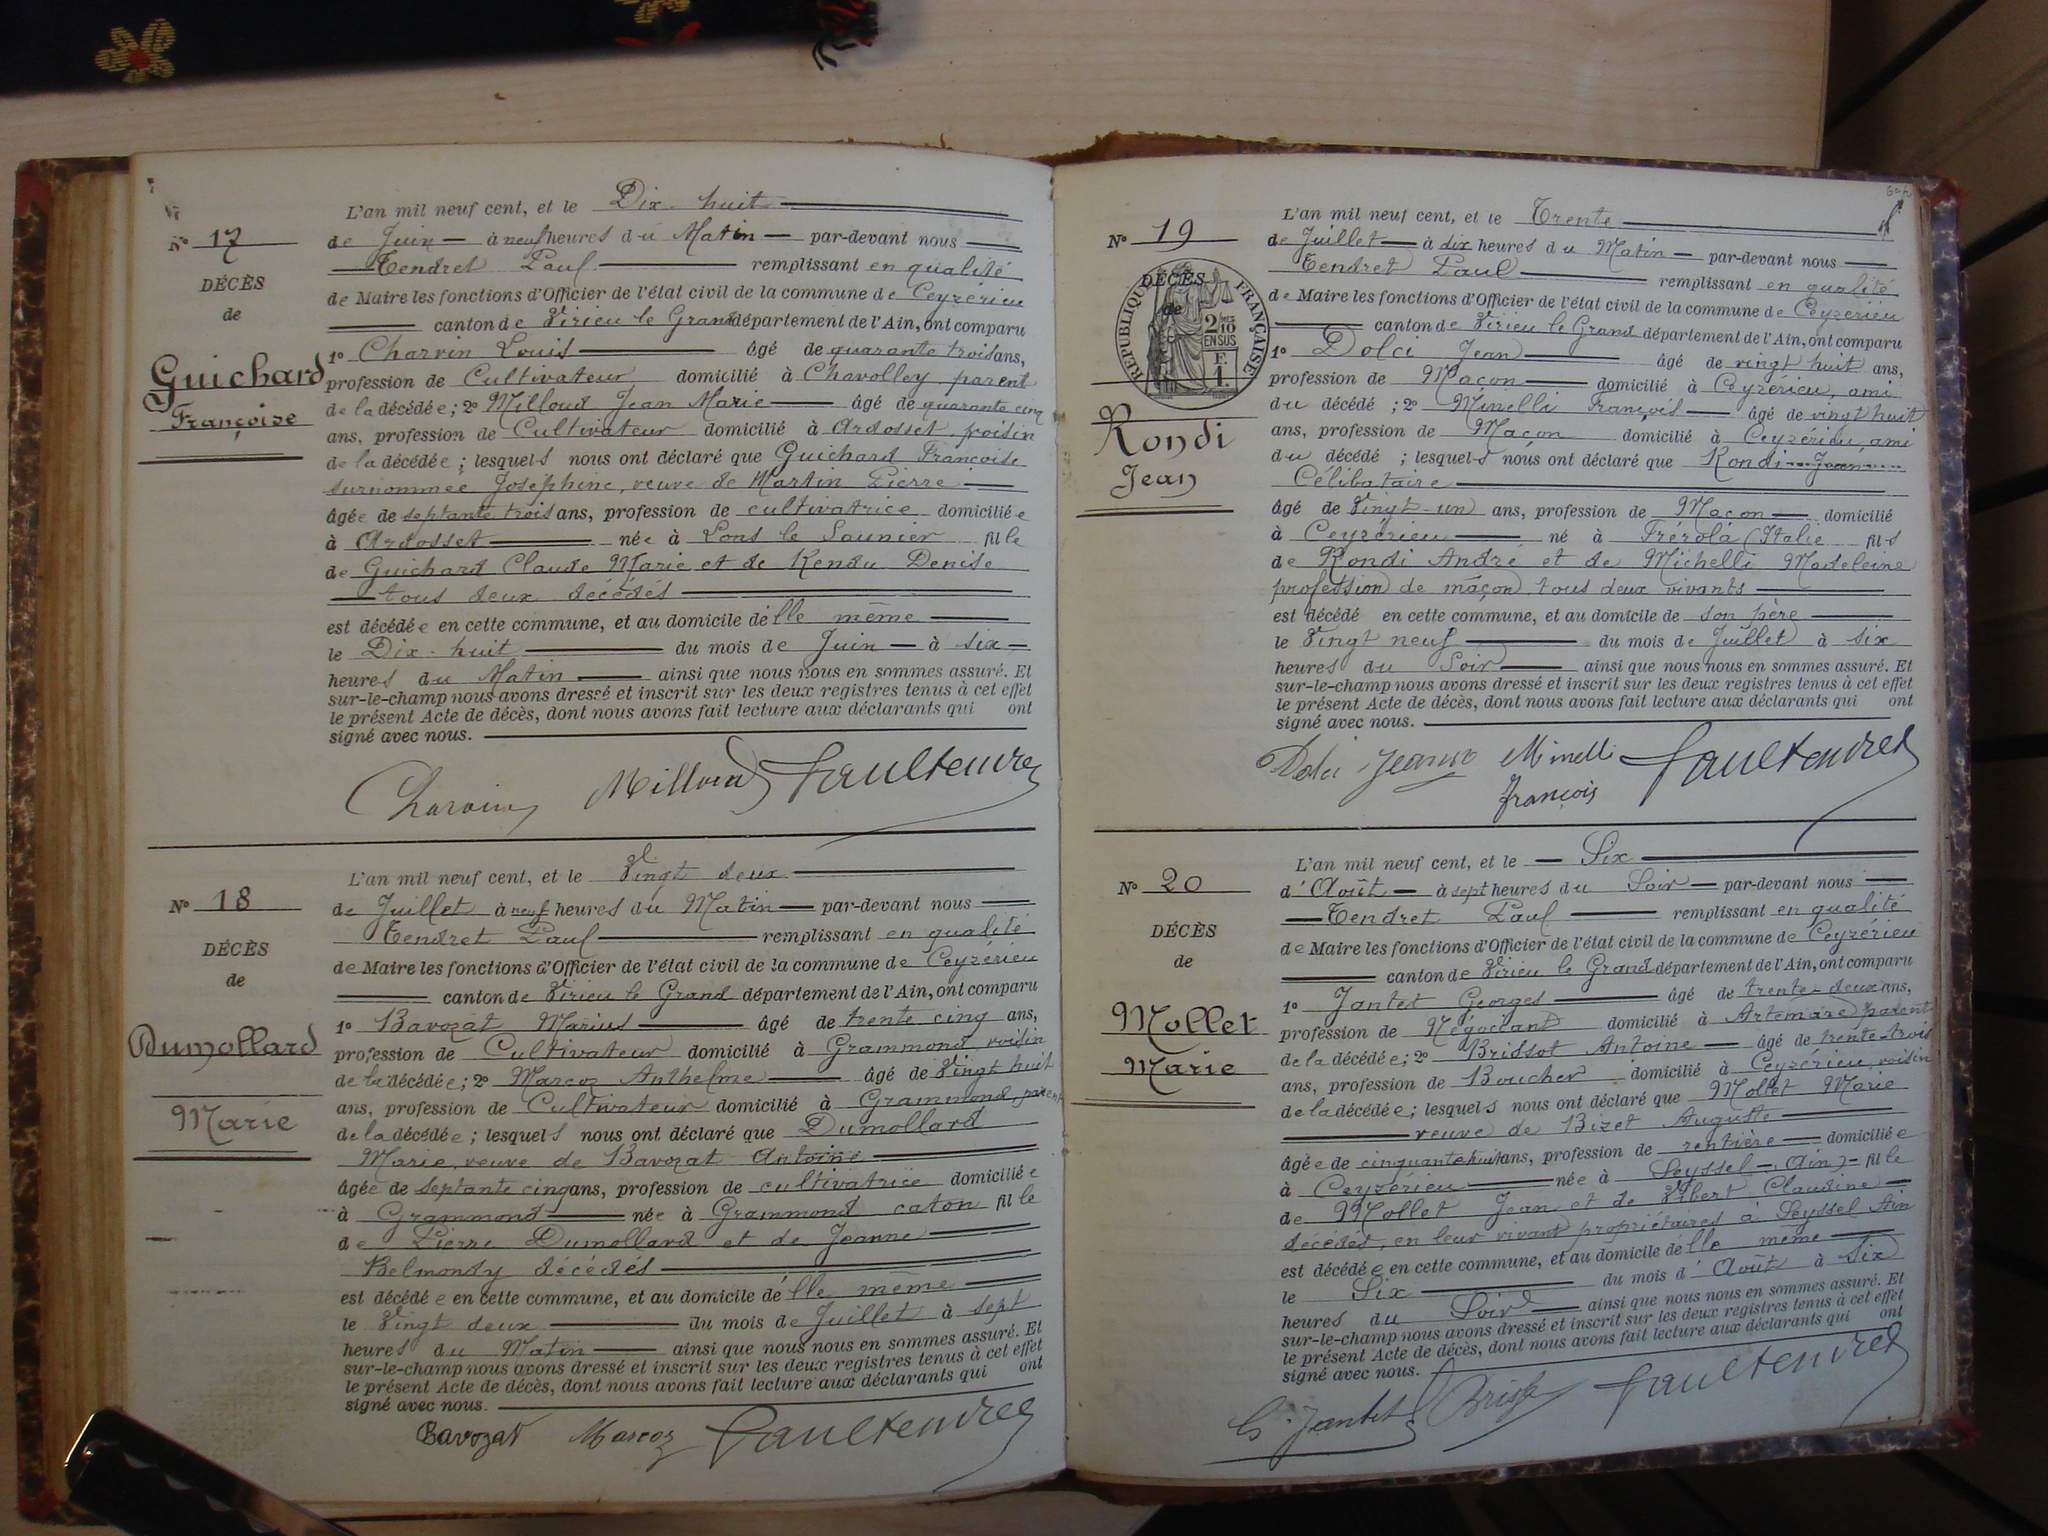 N° 17
DÉCÈS
de
Guichard
Françoise
L'an mil neuf cent, et le Dix-huit
de Juin à neuf heures du Matin par-devant nous
Tendret Paul remplissant en qualité
de Maire les fonctions d'Officier de l'état civil de la commune de Ceyzérieu
canton de Virieu le Grand département de l'Ain, ont comparu
1° Charvin Louis âgé de quarante trois ans,
profession de Cultivateur domicilié à Chavolley, parent
de la décédée; 2° Milloud Jean Marie âgé de quarante cinq
ans, profession de Cultivateur domicilié à Ardosset voisin
de la décédée; lesquels nous ont déclaré que Guichard Françoise
surnommée Joséphine, veuve de Martin Pierre
âgée de septante trois ans, profession de cultivatrice domiciliée
à Ardosset née à Lons le Saunier fille
de Guichard Claude Marie et de Rendu Denise
tous deux décédés
est décédée en cette commune, et au domicile d'elle même
le Dix-huit du mois de Juin à six
heures du Matin ainsi que nous nous en sommes assuré. Et
sur-le-champ nous avons dressé et inscrit sur les deux registres tenus à cet effet
le présent Acte de décès, dont nous avons fait lecture aux déclarants qui ont
signé avec nous.
Charvin Milloud Paul Tendret
N° 18
DÉCÈS
de
Dumollard
Marie
L'an mil neuf cent, et le Vingt deux
de Juillet à neuf heures du Matin par-devant nous
Tendret Paul remplissant en qualité
de Maire les fonctions d'Officier de l'état civil de la commune de Ceyzérieu
canton de Virieu le Grand département de l'Ain, ont comparu
1° Bavozat Marius âgé de trente cinq ans,
profession de Cultivateur domicilié à Grammond, voisin
de la décédée; 2° Marcoz Anthelme âgé de Vingt huit
ans, profession de Cultivateur domicilié à Grammond, parent
de la décédée; lesquels nous ont déclaré que Dumollard
Marie, veuve de Bavozat Antoine
âgée de septante cinq ans, profession de cultivatrice domiciliée
à Grammond née à Grammond caton fille
de Pierre Dumollard et de Jeanne
Belmondy décédés
est décédée en cette commune, et au domicile d'elle même
le Vingt deux du mois de Juillet à sept
heures du Matin ainsi que nous nous en sommes assuré. Et
sur-le-champ nous avons dressé et inscrit sur les deux registres tenus à cet effet
le présent Acte de décès, dont nous avons fait lecture aux déclarants qui ont
signé avec nous.
Bavozat Marcoz Paul Tendret
N° 19
DÉCÈS
de
RÉPUBLIQUE FRANÇAISE
2/10
EN SUS
F.
1.
Rondi
Jean
L'an mil neuf cent, et le Trente
de Juillet à dix heures du Matin par-devant nous
Tendret Paul remplissant en qualité
de Maire les fonctions d'Officier de l'état civil de la commune de Ceyzérieu
canton de Virieu le Grand département de l'Ain, ont comparu
1° Dolci Jean âgé de vingt huit ans,
profession de Maçon domicilié à Ceyzérieu, ami
du décédé; 2° Minelli François âgé de vingt huit
ans, profession de Maçon domicilié à Ceyzérieu, ami
du décédé; lesquels nous ont déclaré que Rondi Jean
Célibataire
âgé de Vingt-un ans, profession de Maçon domicilié
à Ceyzérieu né à Frérola (Italie fils
de Rondi André et de Michelli Madeleine
profession de maçon, tous deux vivants
est décédé en cette commune, et au domicile de son père
le Vingt neuf du mois de Juillet à six
heures du Soir ainsi que nous nous en sommes assuré. Et
sur-le-champ nous avons dressé et inscrit sur les deux registres tenus à cet effet
le présent Acte de décès, dont nous avons fait lecture aux déclarants qui ont
signé avec nous.
Dolci Minelli Paul Tendret
François
N° 20
DÉCÈS
de
Mollet
Marie
L'an mil neuf cent, et le Six
d'Août à sept heures du Soir par-devant nous
Tendret Paul remplissant en qualité
de Maire les fonctions d'Officier de l'état civil de la commune de Ceyzérieu
canton de Virieu le Grand département de l'Ain, ont comparu
1° Jantet Georges âgé de trente-deux ans,
profession de Négociant domicilié à Artemare parent
de la décédée; 2° Brissot Antoine âgé de trente-trois
ans, profession de Boucher domicilié à Ceyzérieu, voisin
de la décédée; lesquels nous ont déclaré que Mollet Marie
veuve de Bizet Auguste
âgée de cinquante huit ans, profession de rentière domiciliée
à Ceyzérieu née à Seyssel (Ain) fille
de Mollet Jean et de Vibert Claudine
décédés, en leur vivant propriétaires à Seyssel Ain
est décédée en cette commune, et au domicile d'elle même
le Six du mois d'Août à Six
heures du Soir ainsi que nous nous en sommes assuré. Et
sur-le-champ nous avons dressé et inscrit sur les deux registres tenus à cet effet
le présent Acte de décès, dont nous avons fait lecture aux déclarants qui ont
signé avec nous.
G. Jantet Paul Tendret